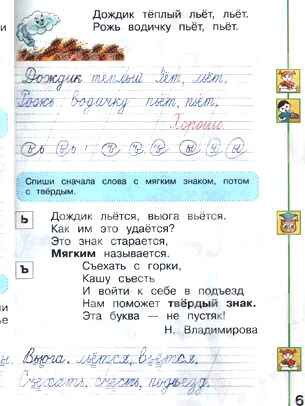 Дождик тёплый льёт, льёт.
Рожь водичку пьёт, пьёт.
Дождик тёплый льёт, льёт.
Рожь водичку пьёт, пьёт.
Хорошо
Спиши сначала слова с мягким знаком, потом
с твёрдым.
Ь Дождик льётся, вьюга вьётся.
Как им это удаётся?
Это знак старается,
Мягким называется.
Ъ Съехать с горки,
Кашу съесть
И войти к себе в подъезд
Нам поможет твёрдый знак.
Эта буква — не пустяк!
Н. Владимирова
Вьюга, льётся, вьётся.
Съехать, съесть, подъезд.
6